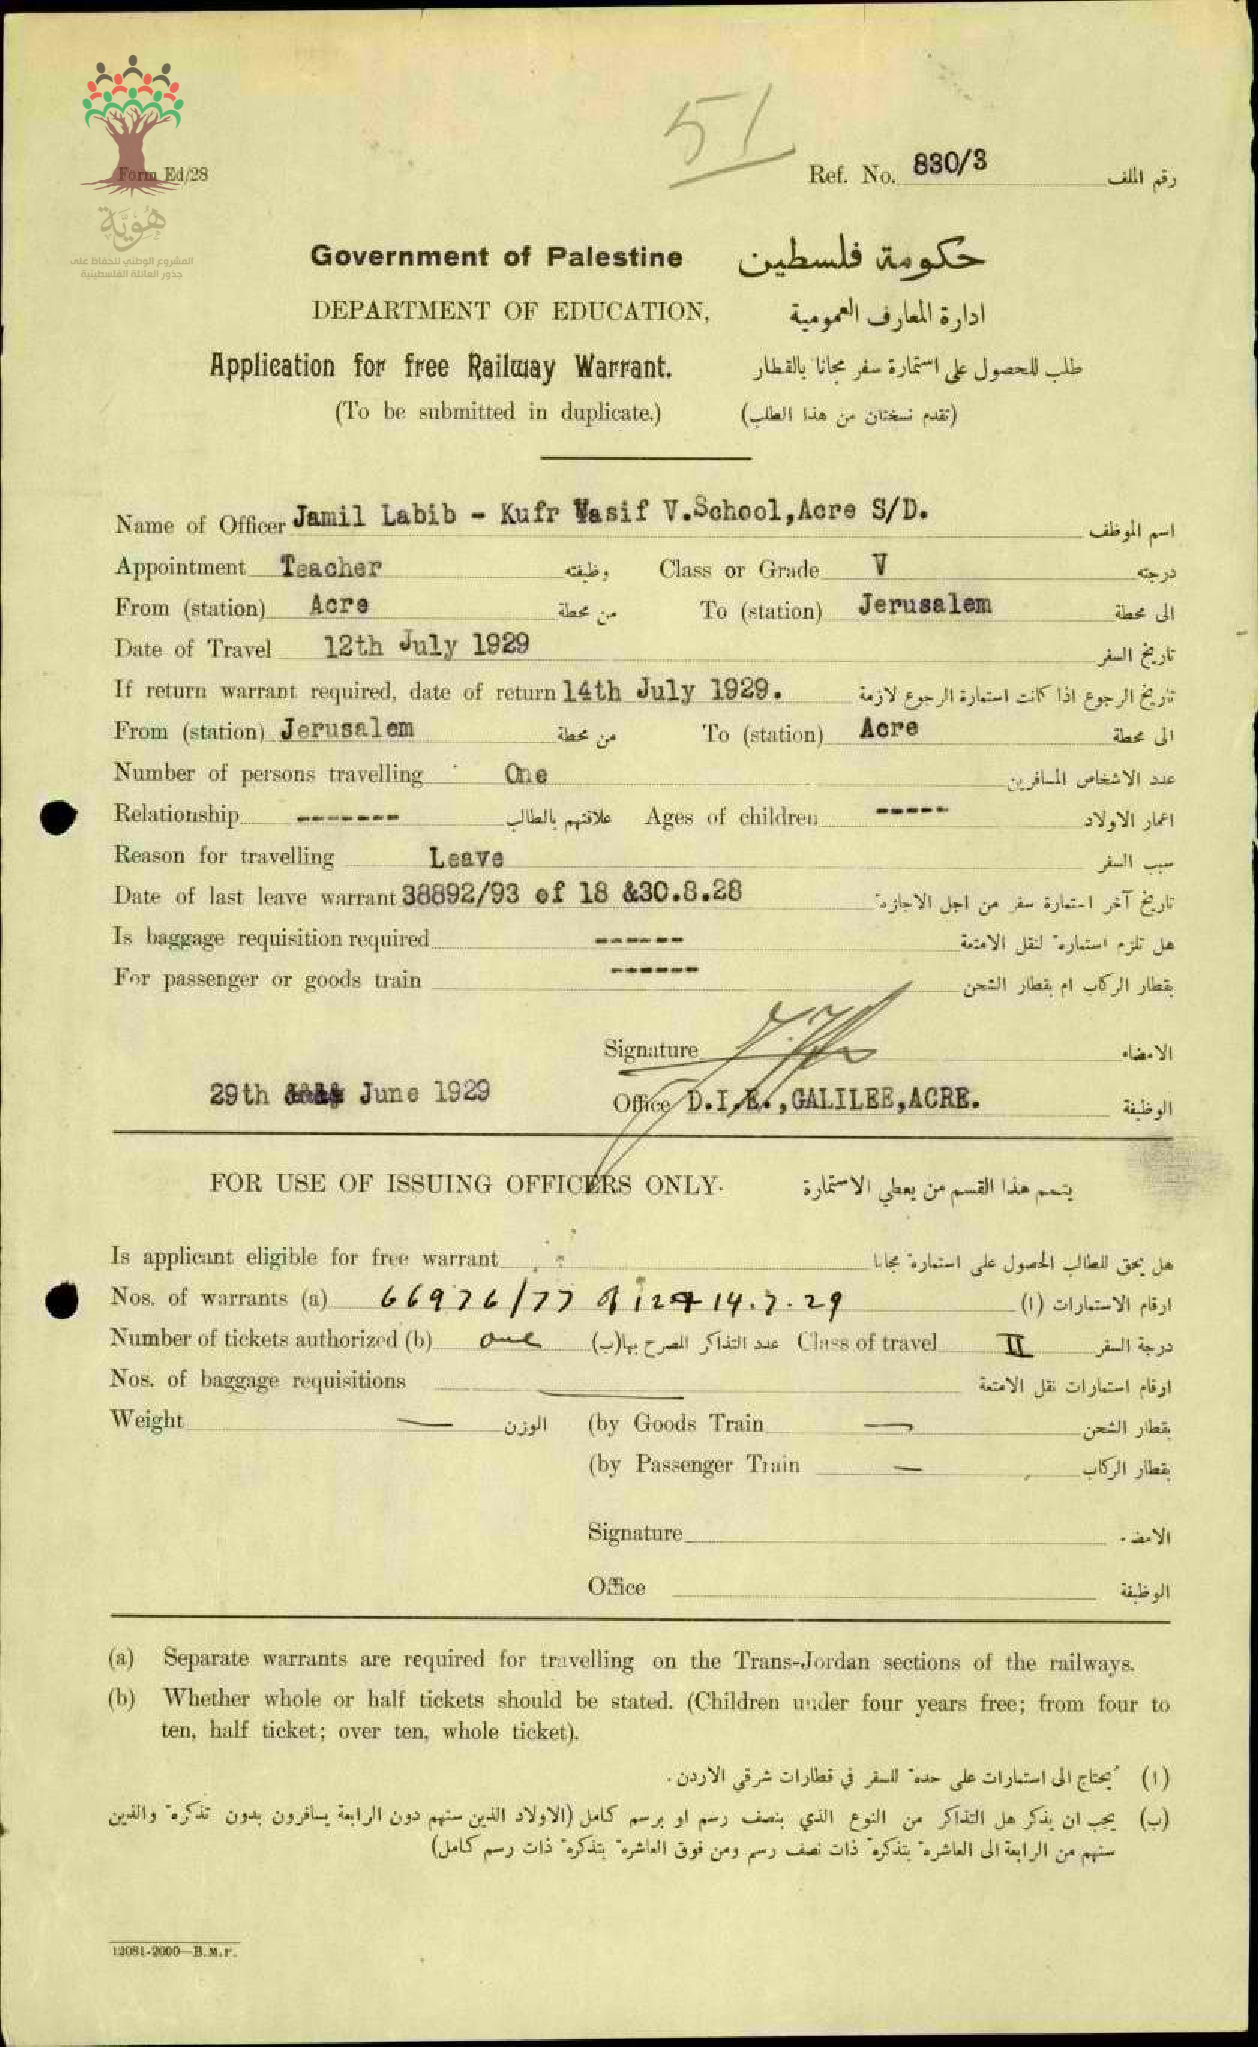 51
Form Ed/28
Ref. No. 830/3 رقم الملف
هُوِيَّة
المشروع الوطني للحفاظ على
جذور العائلة الفلسطينية
Government of Palestine حكومة فلسطين
DEPARTMENT OF EDUCATION, ادارة المعارف العمومية
Application for free Railway Warrant. طلب للحصول على استمارة سفر مجانا بالقطار
(To be submitted in duplicate.) (تقدم نسختان من هذا الطلب)
Name of Officer Jamil Labib - Kufr Yasif V.School,Acre S/D. اسم الموظف
Appointment Teacher وظيفته Class or Grade V درجته
From (station) Acre من محطة To (station) Jerusalem الى محطة
Date of Travel 12th July 1929 تاريخ السفر
If return warrant required, date of return 14th July 1929. تاريخ الرجوع اذا كانت استمارة الرجوع لازمة
From (station) Jerusalem من محطة To (station) Acre الى محطة
Number of persons travelling One عدد الاشخاص المسافرين
Relationship ------- علاقتهم بالطالب Ages of children ----- اعمار الاولاد
Reason for travelling Leave سبب السفر
Date of last leave warrant 38892/93 of 18 &30.8.28 تاريخ آخر استمارة سفر من اجل الاجازة
Is baggage requisition required ------ هل تلزم استمارة لنقل الامتعة
For passenger or goods train ------ بقطار الركاب ام بقطار الشحن
Signature الامضاء
29th June 1929 Office D.I.E.,GALILEE,ACRE. الوظيفة
FOR USE OF ISSUING OFFICERS ONLY. يتمم هذا القسم من يعطي الاستمارة
Is applicant eligible for free warrant هل يحق للطالب الحصول على استمارة مجانا
Nos. of warrants (a) 66976/77 of 12 + 14.7.29 ارقام الاستمارات (ا)
Number of tickets authorized (b) one عدد التذاكر المصرح بها (ب) Class of travel II درجة السفر
Nos. of baggage requisitions — ارقام استمارات نقل الامتعة
Weight — الوزن (by Goods Train — بقطار الشحن
(by Passenger Train — بقطار الركاب
Signature الامضاء
Office الوظيفة
(a) Separate warrants are required for travelling on the Trans-Jordan sections of the railways.
(b) Whether whole or half tickets should be stated. (Children under four years free; from four to
ten, half ticket; over ten, whole ticket).
(ا) يحتاج الى استمارات على حدة للسفر في قطارات شرقي الاردن.
(ب) يجب ان يذكر هل التذاكر من النوع الذي بنصف رسم او برسم كامل (الاولاد الذين سنهم دون الرابعة يسافرون بدون تذكرة والذين
سنهم من الرابعة الى العاشرة بتذكرة ذات نصف رسم ومن فوق العاشرة بتذكرة ذات رسم كامل)
12081-2000—B.M.P.